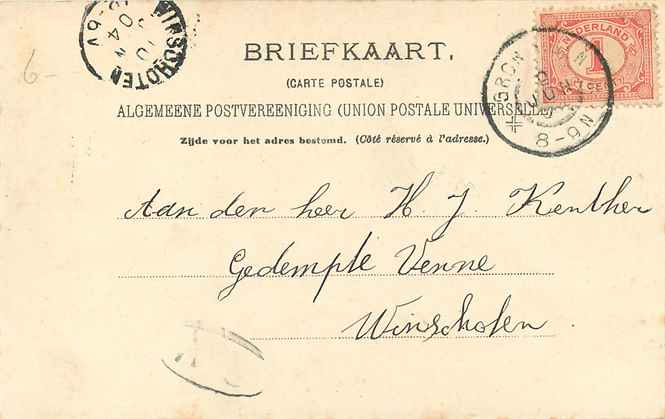 6-
WINSCHOTEN
04
6-8V
BRIEFKAART.
(CARTE POSTALE)
ALGEMEENE POSTVEREENIGING (UNION POSTALE UNIVERSELLE)
Zijde voor het adres bestemd. (Côté réservé à l'adresse.)
NEDERLAND
1
CT
8-9N
Aan den heer H. J. Kenther
Gedempte Venne
Winschoten